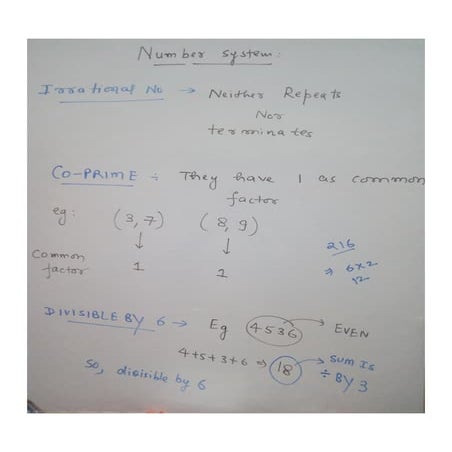 Number system:
Irrational No → Neither Repeats
Nor
terminates
CO-PRIME ÷ They have 1 as common
factor
eg: (3,7) (8,9)
↓ ↓
Common
factor 1 1
216
⇒ 6×2
12
DIVISIBLE BY 6 → Eg 4536 → EVEN
4+5+3+6 ⇒ 18 → SUM IS
÷ BY 3
So, divisible by 6